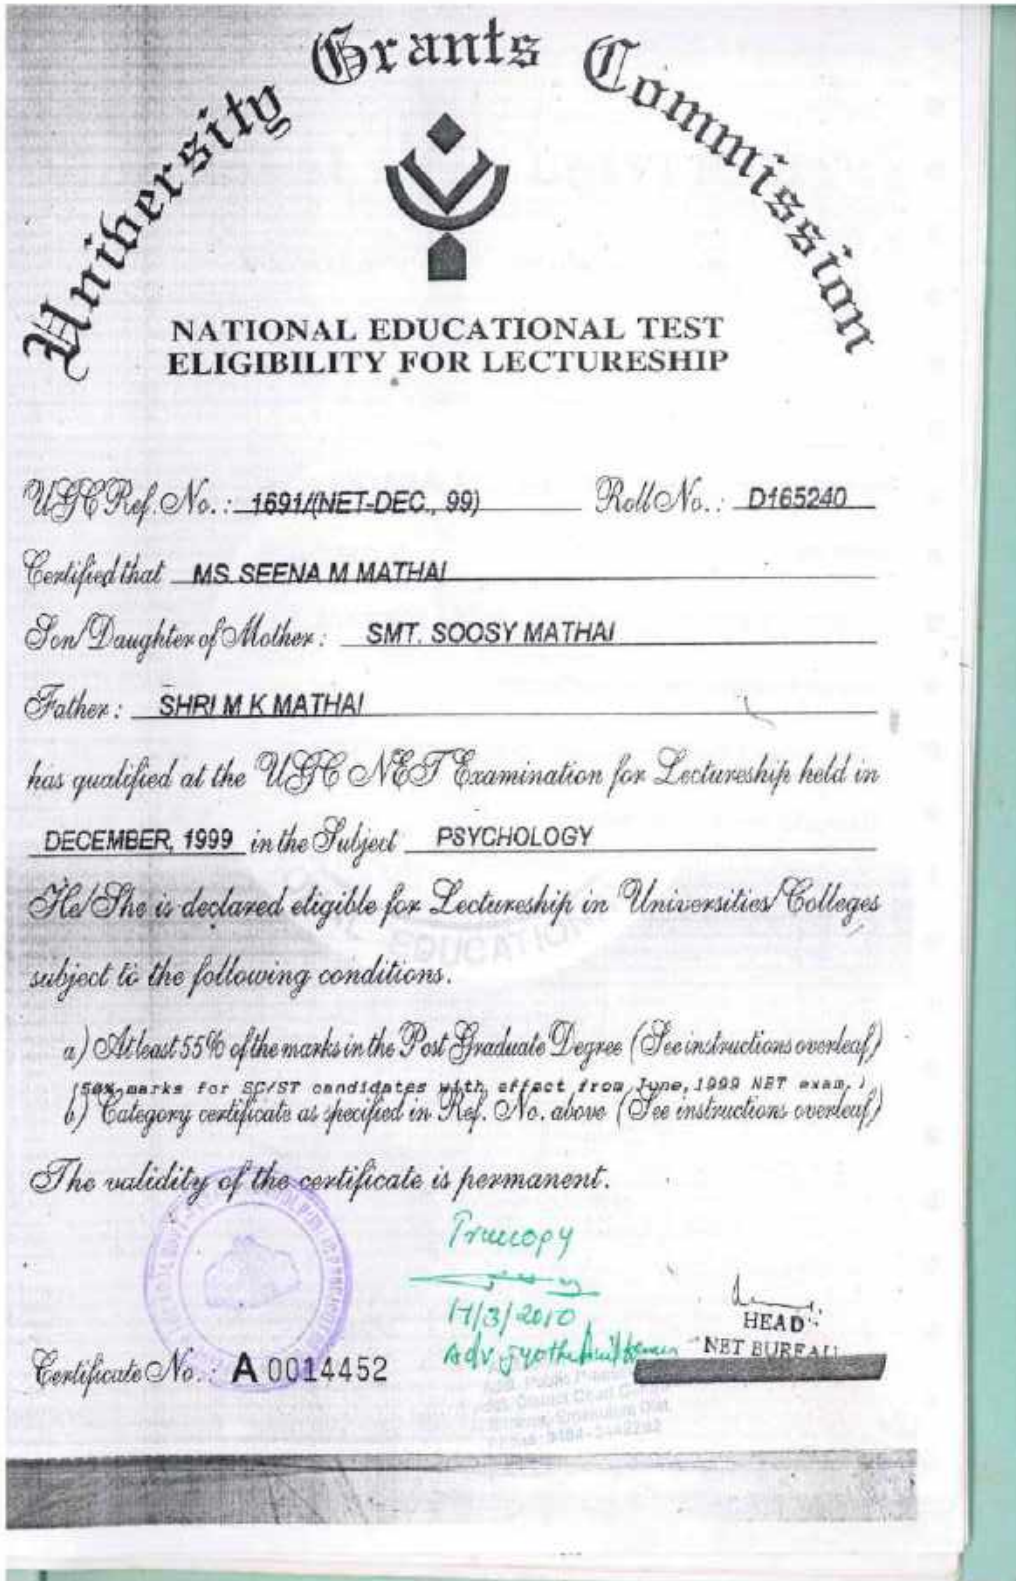 University Grants Commission
NATIONAL EDUCATIONAL TEST
ELIGIBILITY FOR LECTURESHIP
UGC Ref. No. : 1691/(NET-DEC., 99) Roll No. : D165240
Certified that MS SEENA M MATHAI
Son/Daughter of Mother : SMT. SOOSY MATHAI
Father : SHRI M K MATHAI
has qualified at the UGC NET Examination for Lectureship held in
DECEMBER, 1999 in the Subject PSYCHOLOGY
He/She is declared eligible for Lectureship in Universities/Colleges
subject to the following conditions.
a) Atleast 55% of the marks in the Post Graduate Degree (See instructions overleaf)
(50% marks for SC/ST candidates with effect from June, 1999 NET exam.)
b) Category certificate as specified in Ref. No. above (See instructions overleaf)
The validity of the certificate is permanent.
Truecopy
17/3/2010
Adv.
HEAD
NET BUREAU
Certificate No. : A 0014452
EDUCATION